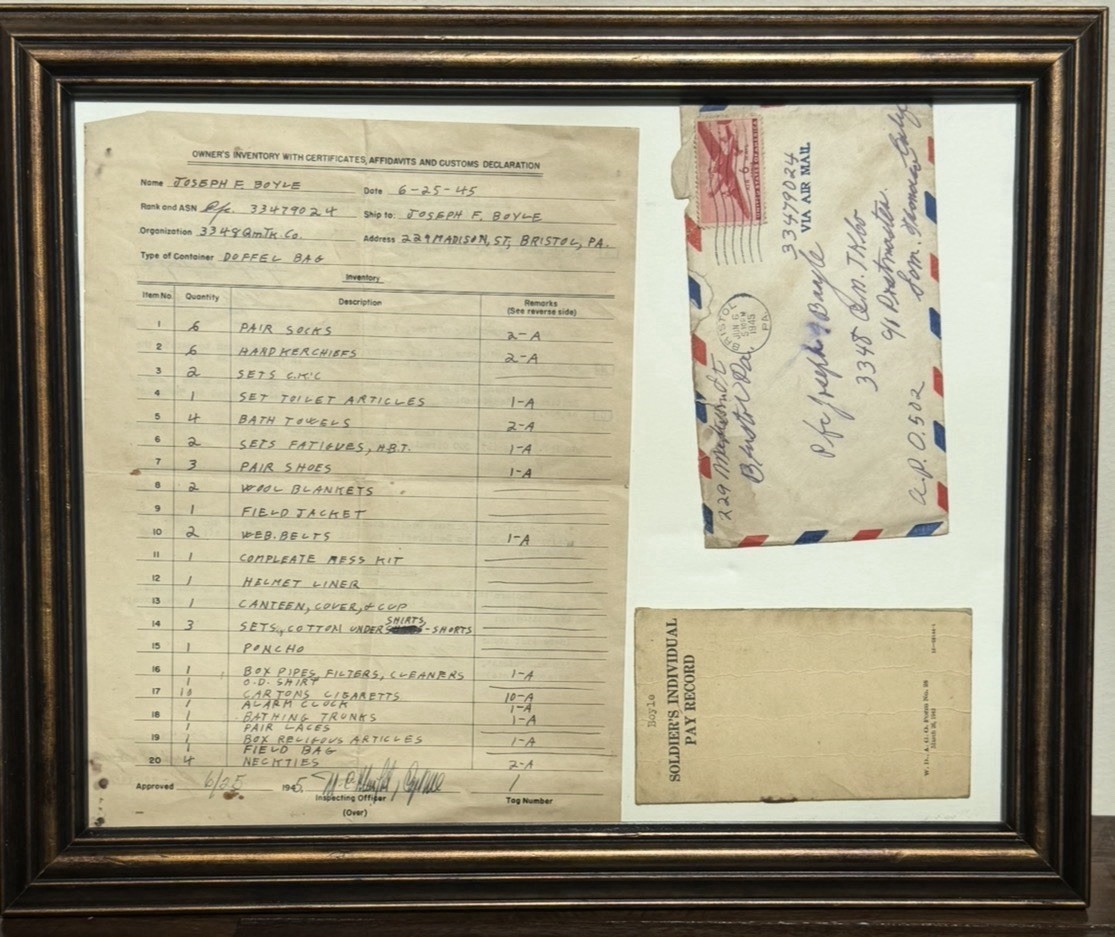 OWNER'S INVENTORY WITH CERTIFICATES, AFFIDAVITS AND CUSTOMS DECLARATION
Name JOSEPH F. BOYLE Date 6-25-45
Rank and ASN Pfc. 33479024 Ship to: JOSEPH F. BOYLE
Organization 3348 QmTk Co. Address 229 MADISON, ST, BRISTOL, PA.
Type of Container DOFFEL BAG
Inventory
Item No. Quantity Description Remarks (See reverse side)
1 6 PAIR SOCKS 2-A
2 6 HANDKERCHIEFS 2-A
3 2 SETS C.K.C
4 1 SET TOILET ARTICLES 1-A
5 4 BATH TOWELS 2-A
6 2 SETS FATIGUES, H.B.T. 1-A
7 3 PAIR SHOES 1-A
8 2 WOOL BLANKETS
9 1 FIELD JACKET
10 2 WEB. BELTS 1-A
11 1 COMPLEATE MESS KIT
12 1 HELMET LINER
13 1 CANTEEN, COVER, & CUP
14 3 SETS, COTTON UNDER SHIRTS, - SHORTS
15 1 PONCHO
16 1 BOX PIPES, FILTERS, CLEANERS 1-A
1 O.D. SHIRT
17 10 CARTONS CIGARETTS 10-A
1 ALARM CLOCK 1-A
18 1 BATHING TRUNKS 1-A
1 PAIR LACES
19 1 BOX RELIGOUS ARTICLES 1-A
1 FIELD BAG
20 4 NECKTIES 2-A
Approved 6/25 1945
Inspecting Officer Tag Number
(Over)
1
UNITED STATES OF AMERICA
6
229 St
Bristol Pa.
BRISTOL
JUN 6
1945
PA.
33479024
VIA AIR MAIL
Pfc Joseph Boyle
3348 Q.M. TK Co
c/o Postmaster
A.P.O. 502
Boyle
SOLDIER'S INDIVIDUAL
PAY RECORD
W. D., A. G. O. Form No. 28
March 26, 1942